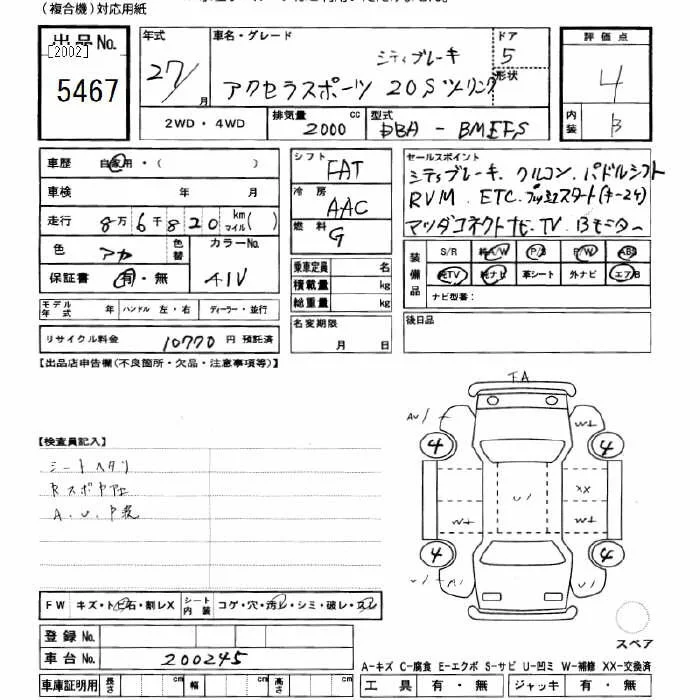 (複合機)対応用紙
出品No.
[2002]
5467
年式
27/
月
車名・グレード
シティブレーキ
アクセラスポーツ 20Sツーリング
ドア
5
形状
評価点
4
内装
B
2WD・4WD
排気量
2000 cc
型式
DBA-BMEFS
車歴 自家用・( )
車検 年 月
走行 8万6千820 km マイル( )
色 アカ
色替
カラーNo.
41V
保証書 有・無
モデル年式 年 ハンドル 左・右 ディーラー・並行
リサイクル料金 10770 円 預託済
シフト
FAT
冷房
AAC
燃料
G
乗車定員 名
積載量 kg
総重量 kg
名変期限
月 日
セールスポイント
シティブレーキ. クルコン. パドルシフト
RVM. ETC. プッシュスタート(キー2ケ)
マツダコネクトナビ. TV. Bモニター
装備品
S/R 純A/W P/S P/W ABS
純TV 純ナビ 革シート 外ナビ エアB
ナビ型番:
後日品
【出品店申告欄(不良箇所・欠品・注意事項等)】
【検査員記入】
シートヘタリ
A.U.
FA
AU/
W+
4
4
U/
XX
W+
W+
4
4
U/
FW キズ・トビ石・割レX シート内装 コゲ・穴・汚レ・シミ・破レ・スレ
登録No.
車台No. 200245
車庫証明用 長さ cm 幅 cm 高さ cm
スペア
A-キズ C-腐食 E-エクボ S-サビ U-凹ミ W-補修 XX-交換済
工具 有・無 ジャッキ 有・無